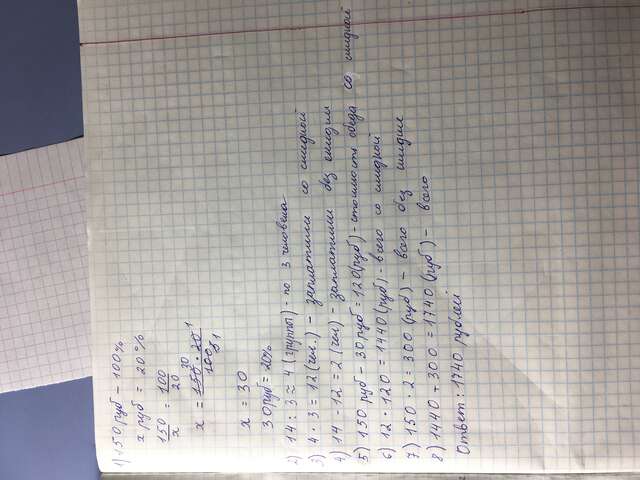 1) 150 руб - 100%
x руб = 20%
150/x = 100/20
x = 150 30 · 20 1 / 100 5 1
x = 30
30 руб = 20%
2) 14 : 3 ≈ 4 (группы) - по 3 человека
3) 4 · 3 = 12 (чел.) - заплатили со скидкой
4) 14 - 12 = 2 (чел) - заплатили без скидки
5) 150 руб - 30 руб = 120 (руб) - стоимость обеда со скидкой
6) 12 · 120 = 1440 (руб) - всего со скидкой
7) 150 · 2 = 300 (руб) - всего без скидки
8) 1440 + 300 = 1740 (руб) - всего
Ответ: 1740 рублей